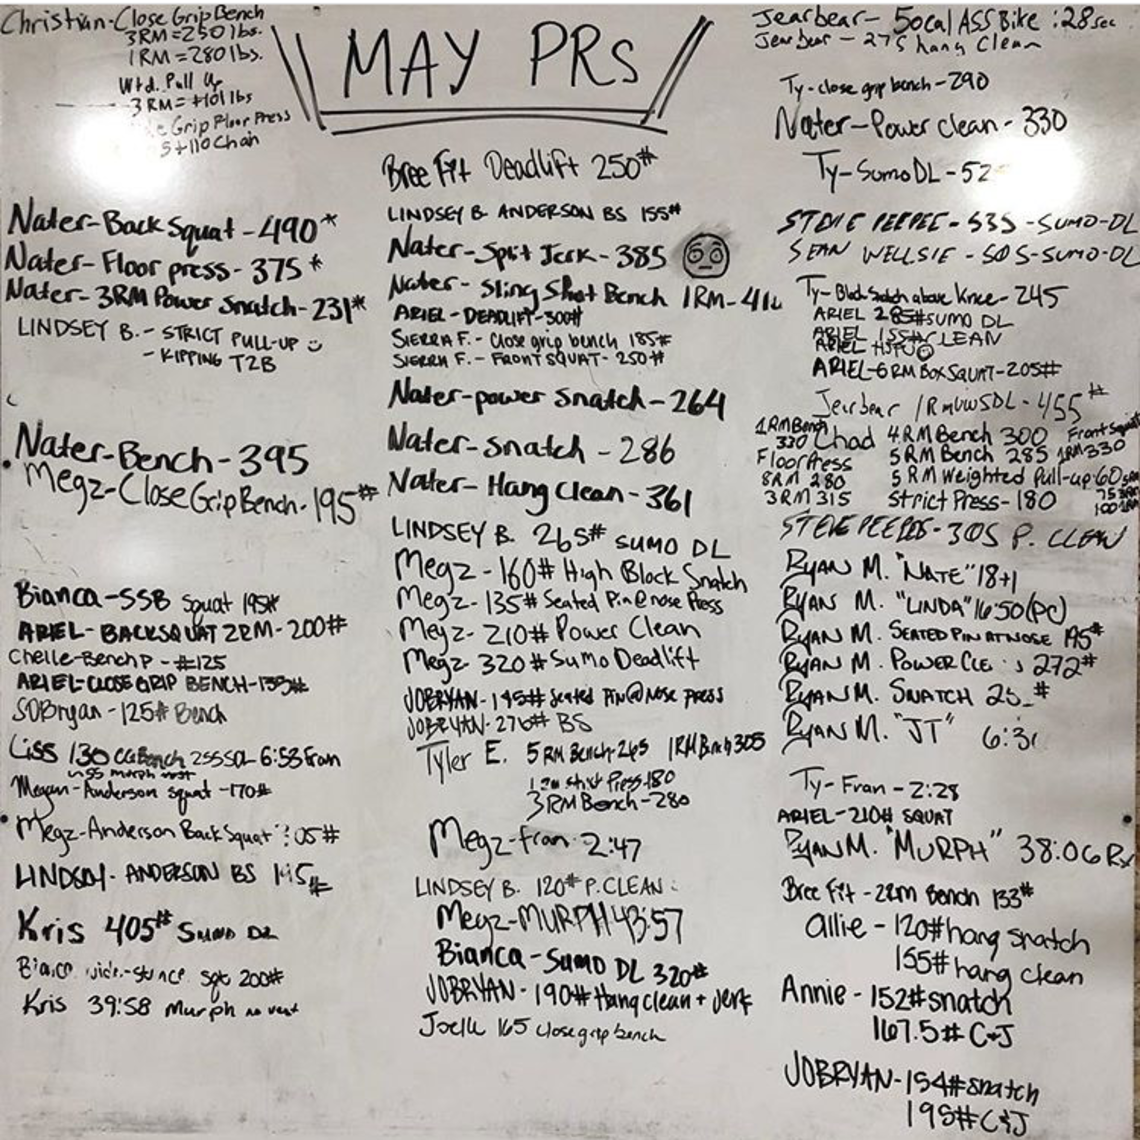 MAY PRs
Christian-Close Grip Bench
3RM=250lbs.
1RM=280lbs.
Wtd. Pull Up
3RM=+101lbs
Grip Floor Press
5+110 Chain
Nater-Back Squat-490*
Nater-Floor press-375*
Nater-3RM Power Snatch-231*
LINDSEY B.-STRICT PULL-UP
-KIPPING T2B
Nater-Bench-395
Megz-Close Grip Bench-195#
Bianca-SSB squat 195#
ARIEL-BACKSQUAT 2RM-200#
Chelle-Bench P-#125
ARIEL-CLOSE GRIP BENCH-135#
SOBryan-125# Bench
Liss 130 CG Bench 255SDL-6:53 Fran
Megan-Anderson squat-170#
Megz-Anderson Back Squat
LINDSAY-ANDERSON BS
Kris 405# Sumo DL
200#
Kris 39:58 Murph no vest
Bree Fit Deadlift 250#
LINDSEY B. ANDERSON BS 155#
Nater-Split Jerk-385
Nater-Sling Shot Bench 1RM-
ARIEL-DEADLIFT-300#
SIERRA F.-Close grip bench 185#
SIERRA F.-FRONT SQUAT-250#
Nater-power snatch-264
Nater-snatch-286
Nater-Hang Clean-361
LINDSEY B. 265# SUMO DL
Megz-160# High Block Snatch
Megz-135# Seated Pin@nose Press
Megz-210# Power Clean
Megz-320# Sumo Deadlift
JOBRYAN-145# Seated Pin@Nose PRESS
JOBRYAN-270# BS
Tyler E. 5RM Bench-265 1RM Bench 305
Press-180
3RM Bench-280
Megz-Fran 2:47
LINDSEY B. 120# P.CLEAN
Megz-MURPH 43:57
Bianca-SUMO DL 320#
JOBRYAN-190# Hang clean + Jerk
Joelle 165 close grip bench
Jearbear-50cal ASS Bike :28sec
Jearbear-275 hang Clean
Ty-close grip bench-290
Nater-Power Clean-330
Ty-Sumo DL-
STEVE PEEPEE-535-SUMO-DL
SEAN WELLSIE-505-SUMO-DL
Ty-Block Snatch above Knee-245
ARIEL 285# SUMO DL
ARIEL 155# CLEAN
ARIEL HSPU
ARIEL-6RM BOX SQUAT-205#
Jearbear 1RM SDL-455#
1RM Bench 330 Chad 4RM Bench 300 Front Squat
Floor Press 5RM Bench 285 1RM 330
8RM 280 5RM Weighted Pull-up 60
3RM 315 Strict Press-180
STEVE PEEPEE-305 P. CLEAN
RYAN M. "NATE" 18+1
RYAN M. "LINDA" 16:50(PC)
RYAN M. SEATED PIN AT NOSE 195#
RYAN M. POWER 272#
RYAN M. SNATCH
RYAN M. "JT"
Ty-Fran-2:28
ARIEL-210# SQUAT
RYAN M. "MURPH" 38:06 Rx
Bree Fit-2RM Bench 133#
Allie-120# hang snatch
155# hang clean
Annie-152# snatch
167.5# C+J
JOBRYAN-154# snatch
195# C&J